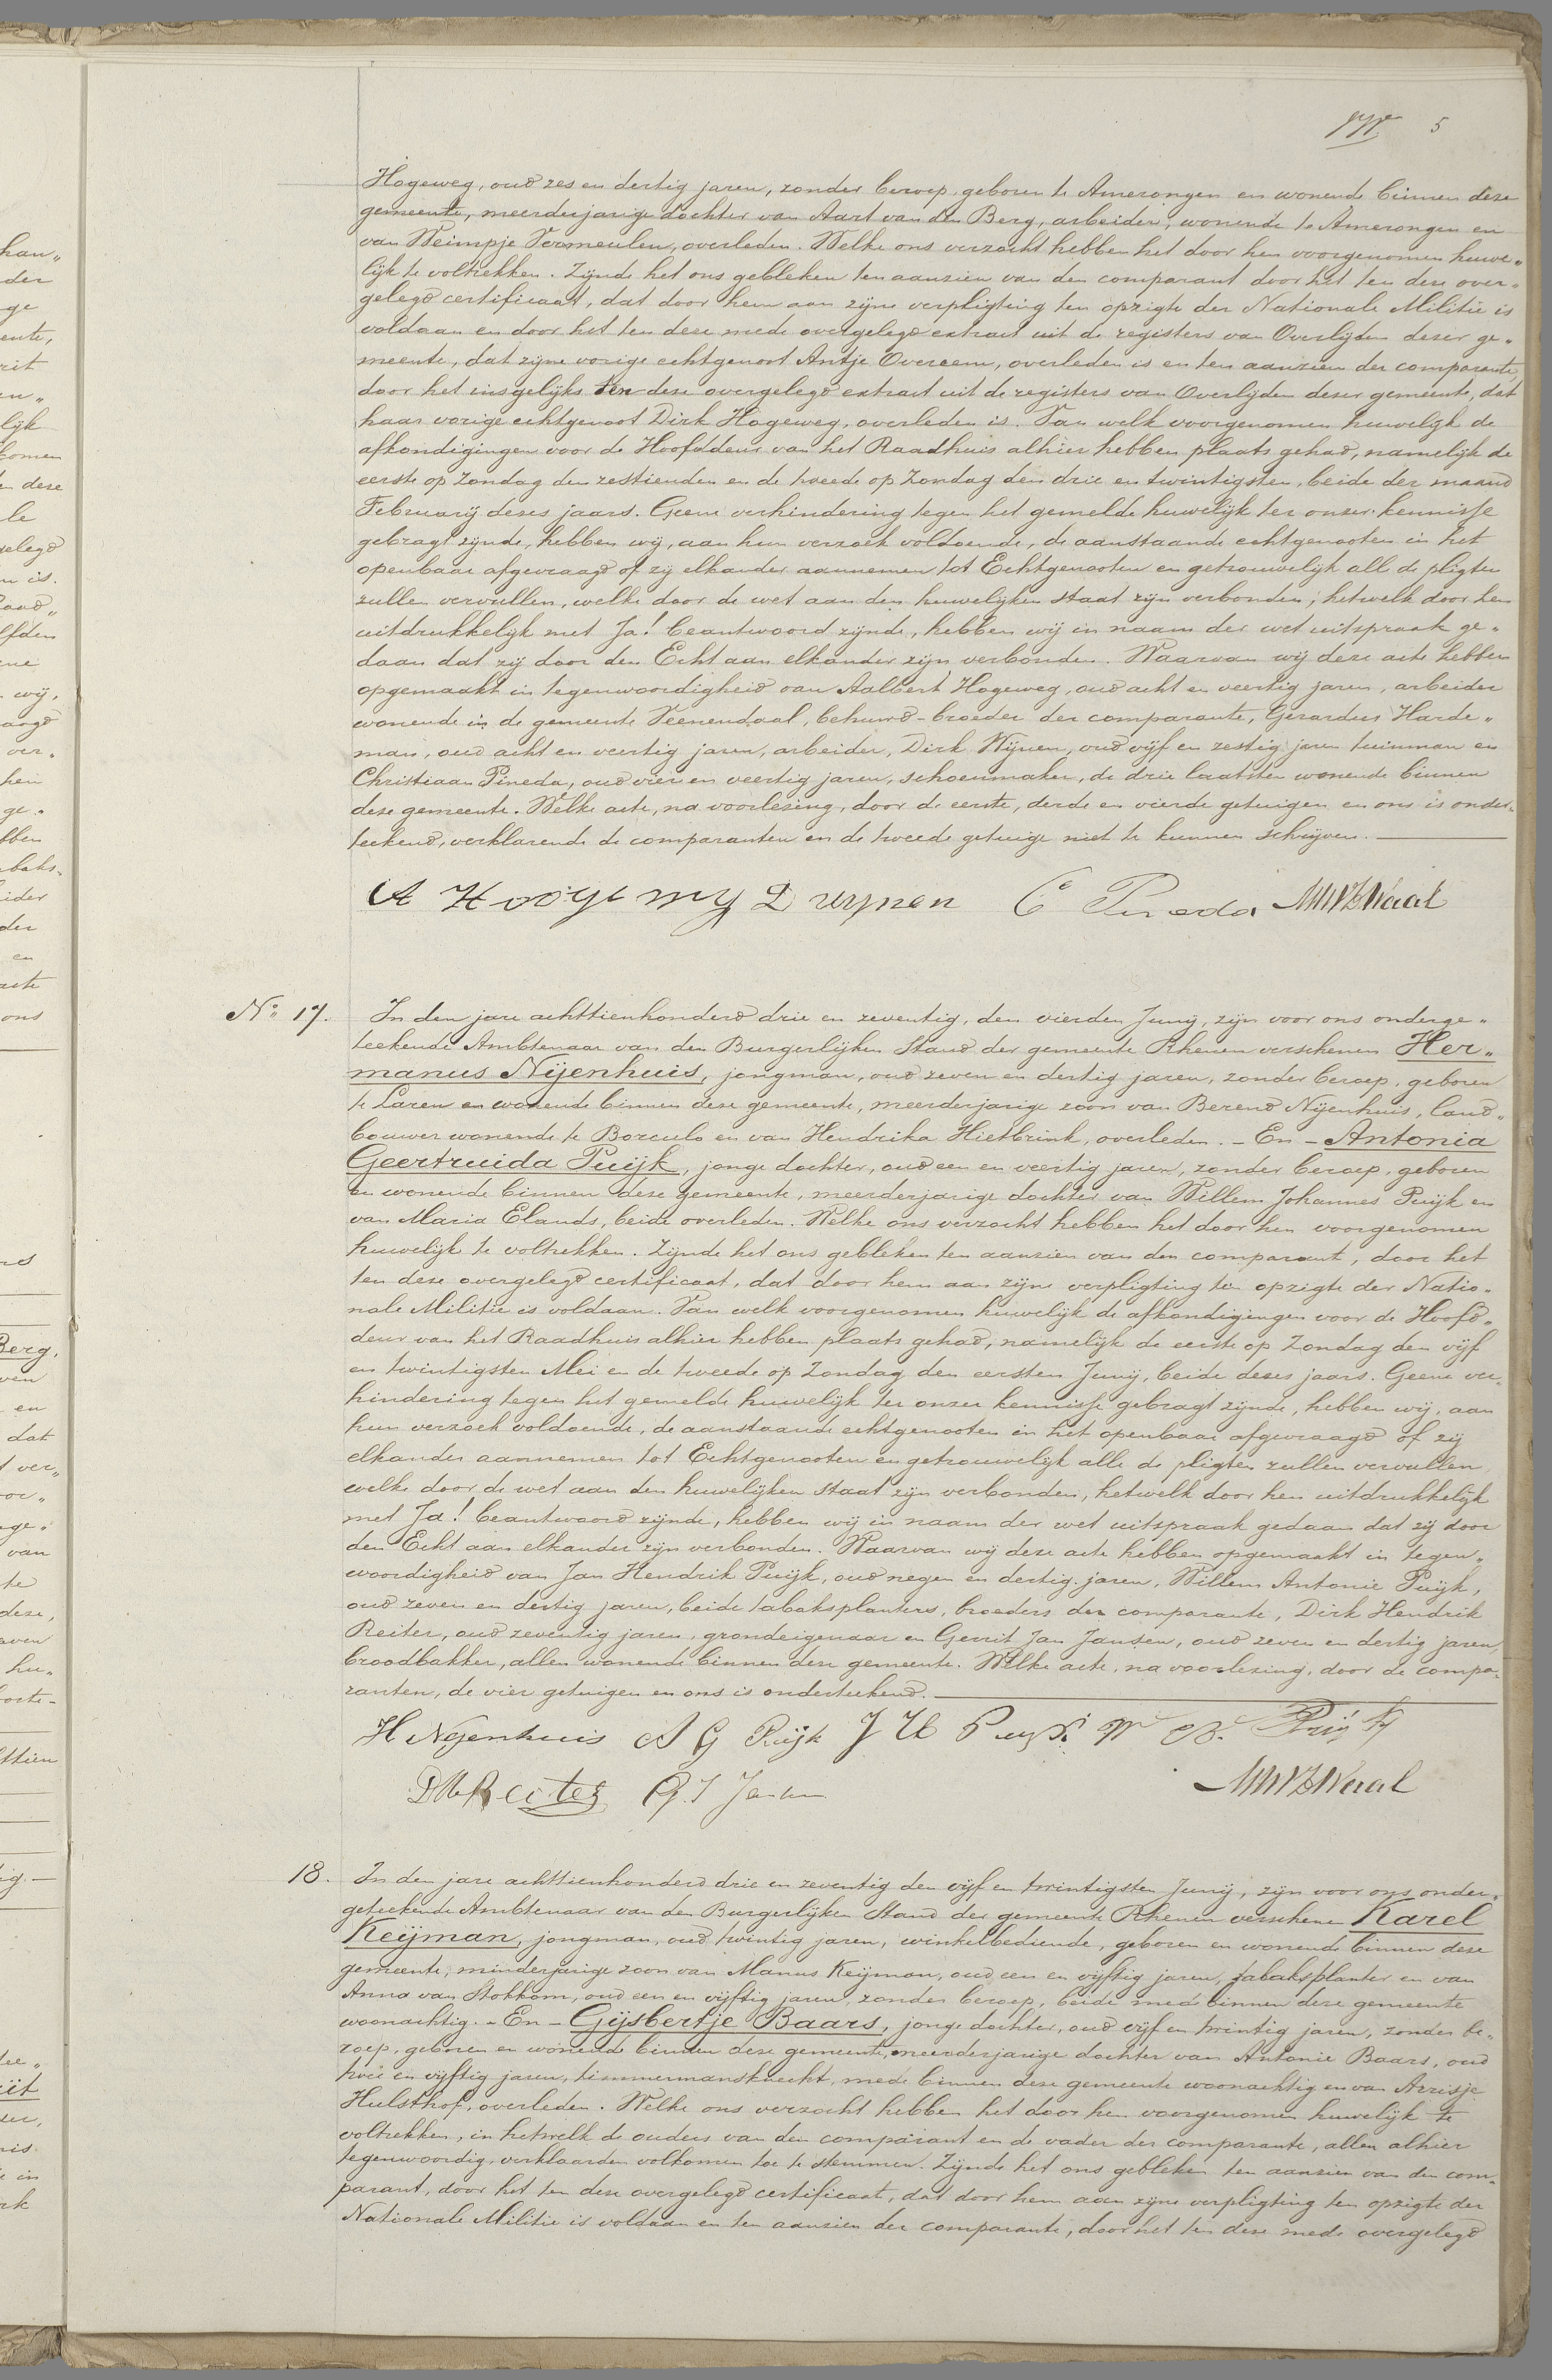 5
Hogeweg, oud zes en dertig jaren, zonder beroep, geboren te Amerongen en wonende binnen deze
gemeente, meerderjarige dochter van Aart van den Berg, arbeider, wonende te Amerongen en
van Weimpje Vermeulen, overleden. Welke ons verzocht hebben het door hen voorgenomen huwe„
lijk te voltrekken. Zijnde het ons gebleken ten aanzien van den comparant door het ten deze over„
gelegd certificaat, dat door hem aan zijne verpligting ten opzigte der Nationale Militie is
voldaan en door het ten deze mede overgelegd extract uit de registers van Overlijden dezer ge„
meente, dat zijne vorige echtgenoot Antje Overeem, overleden is en ten aanzien der comparante,
door het insgelijks ten deze overgelegd extract uit de registers van Overlijden dezer gemeente, dat
haar vorige echtgenoot Dirk Hogeweg, overleden is. Van welk voorgenomen huwelijk de
afkondigingen voor de Hoofddeur van het Raadhuis alhier hebben plaats gehad, namelijk de
eerste op Zondag den zestienden en de tweede op Zondag den drie en twintigsten, beide der maand
Februarij dezes jaars. Geene verhindering tegen het gemelde huwelijk ter onzer kennisse
gebragt zijnde, hebben wij, aan hun verzoek voldoende, de aanstaande echtgenooten in het
openbaar afgevraagd of zij elkander aannemen tot Echtgenooten en getrouwelijk all de pligten
zullen vervullen, welke door de wet aan den huwelijken staat zijn verbonden; hetwelk door hen
uitdrukkelijk met Ja! beantwoord zijnde, hebben wij in naam der wet uitspraak ge„
daan dat zij door den Echt aan elkander zijn verbonden. Waarvan wij deze acte hebben
opgemaakt in tegenwoordigheid van Aalbert Hogeweg, oud acht en veertig jaren, arbeider
wonende in de gemeente Veenendaal, behuwd-broeder der comparante, Gerardus Harde„
man, oud acht en veertig jaren, arbeider, Dirk Wijnen, oud vijf en zestig jaren tuinman en
Christiaan Pineda, oud vier en veertig jaren, schoenmaker, de drie laatsten wonende binnen
deze gemeente. Welke acte, na voorlezing, door de eerste, derde en vierde getuigen en ons is onder„
teekend, verklarende de comparanten en de tweede getuige niet te kunnen schrijven.
D wynen C Pineda
No. 17. In den jare achttienhonderd drie en zeventig, den vierden Junij, zijn voor ons onderge„
teekende Ambtenaar van den Burgerlijken Stand der gemeente Rhenen verschenen Her„
manus Nijenhuis, jongman, oud zeven en dertig jaren, zonder beroep, geboren
te Laren en wonende binnen deze gemeente, meerderjarige zoon van Berend Nijenhuis, land„
bouwer wonende te Borculo en van Hendrika Hietbrink, overleden. – En – Antonia
Geertruida Puijk, jonge dochter, oud een en veertig jaren, zonder beroep, geboren
en wonende binnen deze gemeente, meerderjarige dochter van Willem Johannes Puijk en
van Maria Elands, beide overleden. Welke ons verzocht hebben het door hen voorgenomen
huwelijk te voltrekken. Zijnde het ons gebleken ten aanzien van den comparant, door het
ten deze overgelegd certificaat, dat door hem aan zijne verpligting ten opzigte der Natio„
nale Militie is voldaan. Van welk voorgenomen huwelijk de afkondigingen voor de Hoofd„
deur van het Raadhuis alhier hebben plaats gehad, namelijk de eerste op Zondag den vijf
en twintigsten Mei en de tweede op Zondag den eersten Junij, beide dezes jaars. Geene ver„
hindering tegen het gemelde huwelijk ter onzer kennisse gebragt zijnde, hebben wij, aan
hun verzoek voldoende, de aanstaande echtgenooten in het openbaar afgevraagd of zij
elkander aannemen tot Echtgenooten en getrouwelijk alle de pligten zullen vervullen
welke door de wet aan den huwelijken staat zijn verbonden, hetwelk door hen uitdrukkelijk
met Ja! beantwoord zijnde, hebben wij in naam der wet uitspraak gedaan dat zij door
den Echt aan elkander zijn verbonden. Waarvan wij deze acte hebben opgemaakt in tegen„
woordigheid van Jan Hendrik Puijk, oud negen en dertig jaren, Willem Antonie Puijk,
oud zeven en dertig jaren, beide tabaksplanters, broeders der comparante, Dirk Hendrik
Reiter, oud zeventig jaren, grondeigenaar en Gerrit Jan Jansen, oud zeven en dertig jaren,
broodbakker, allen wonende binnen deze gemeente. Welke acte, na voorlezing, door de compa„
ranten, de vier getuigen en ons is onderteekend.
H Nijenhuis A G Puijk J H Puijk W A Puijk
D H Reiter G. J Jansen
18. In den jare achttienhonderd drie en zeventig den vijf en twintigsten Junij, zijn voor ons onder„
geteekende Ambtenaar van den Burgerlijken Stand der gemeente Rhenen verschenen Karel
Keijman, jongman, oud twintig jaren, winkelbediende, geboren en wonende binnen deze
gemeente, minderjarige zoon van Manus Keijman, oud een en vijftig jaren, tabaksplanter en van
Anna van Stokkom, oud een en vijftig jaren, zonder beroep, beide mede binnen deze gemeente
woonachtig. – En – Gijsbertje Baars, jonge dochter, oud vijf en twintig jaren, zonder be„
roep, geboren en wonende binnen deze gemeente, meerderjarige dochter van Antonie Baars, oud
twee en vijftig jaren, timmermansknecht, mede binnen deze gemeente woonachtig en van Arrisje
Hulsthof, overleden. Welke ons verzocht hebben het door hen voorgenomen huwelijk te
voltrekken, in hetwelk de ouders van den comparant en de vader der comparante, allen alhier
tegenwoordig, verklaarden volkomen toe te stemmen. Zijnde het ons gebleken ten aanzien van den com„
parant, door het ten deze overgelegd certificaat, dat door hem aan zijne verpligting ten opzigte der
Nationale Militie is voldaan en ten aanzien der comparante, door het ten deze mede overgelegd